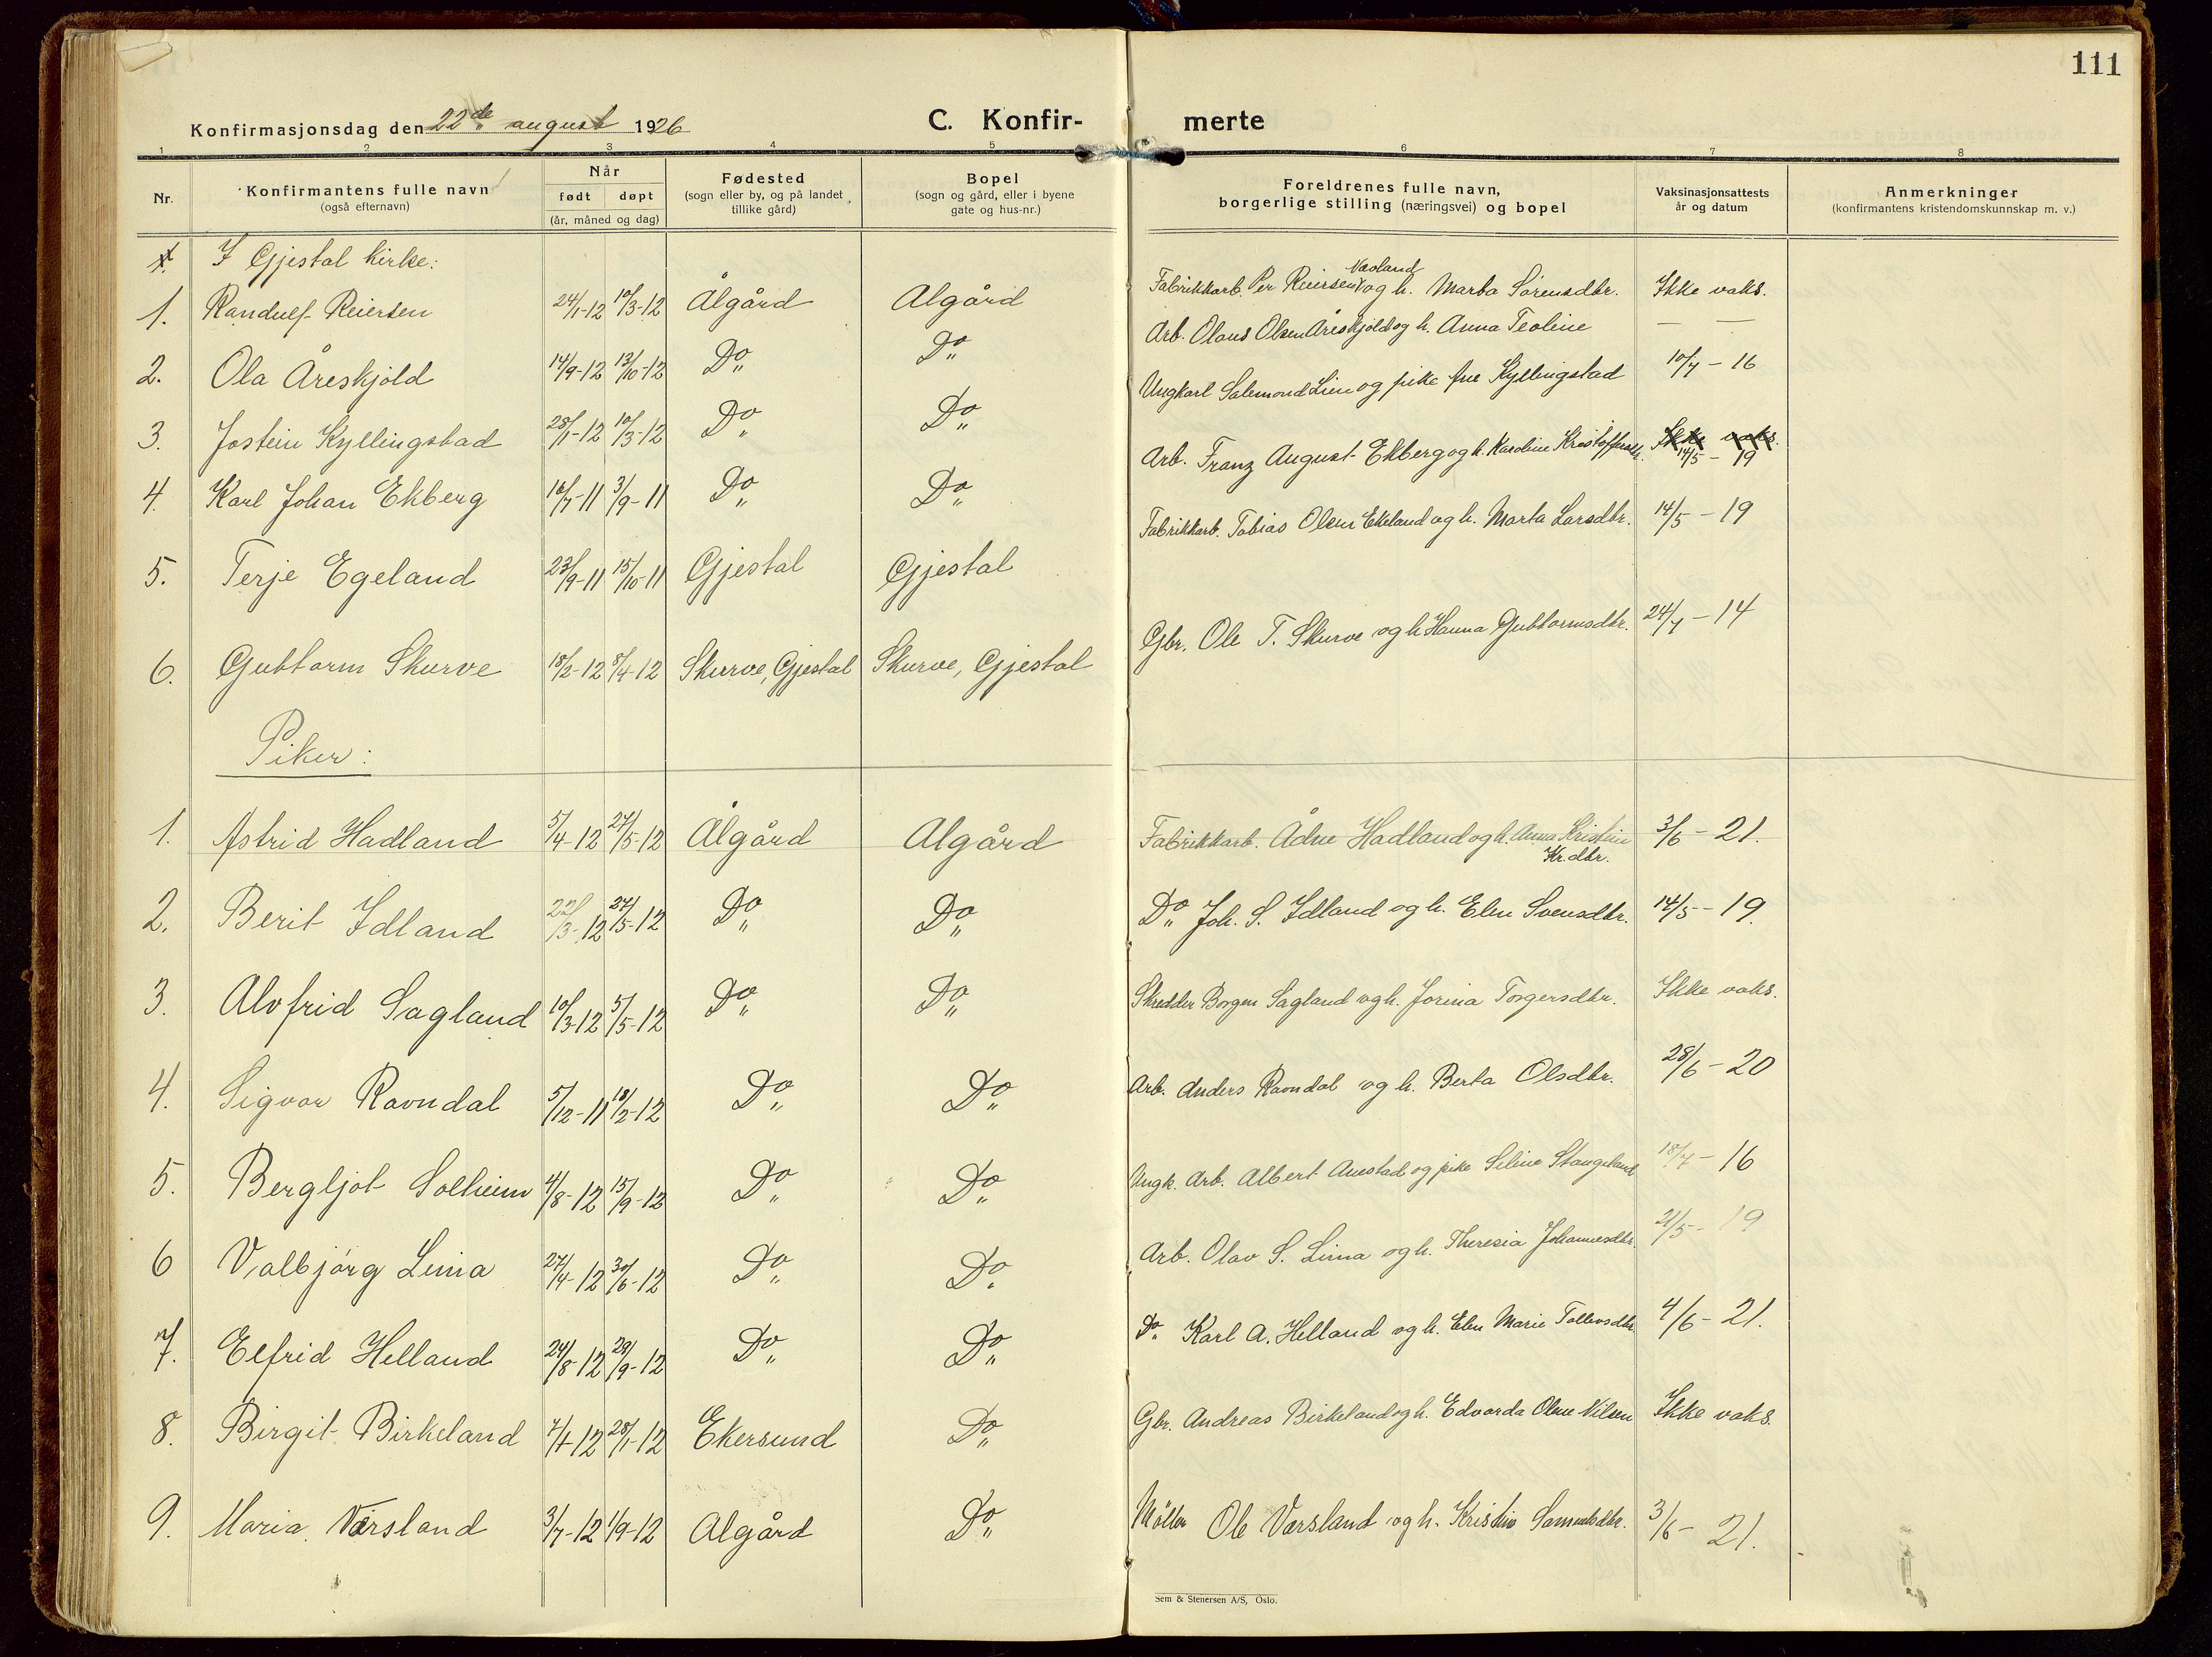 111
Konfirmasjonsdag den 22de august 1926
C. Konfir- merte
1 2 3 4 5 6 7 8
Nr. Konfirmantens fulle navn (også efternavn) Når født døpt (år, måned og dag) Fødested (sogn eller by, og på landet tillike gård) Bopel (sogn og gård, eller i byene gate og hus-nr.) Foreldrenes fulle navn, borgerlige stilling (næringsvei) og bopel Vaksinasjonsattests år og datum Anmerkninger (konfirmantens kristendomskunnskap m. v.)
I Gjestal kirke:
1. Randulf Reiersen 24/1-12 10/3-12 Ålgård Ålgård Fabrikkarb. Per Reiersen Vaoland og h. Marta Sørensdtr. Ikke vaks.
2. Ola Åreskjold 14/9-12 13/10-12 Do Do Arb. Olaus Olsen Åreskjold og h. Anna Teoline — —
3. Jostein Kyllingstad 28/1-12 10/3-12 Do Do Ungkarl Salemond Lien og pike Ane Kyllingstad 10/7-16
4. Karl Johan Ekberg 16/7-11 3/9-11 Do Do Arb. Franz August Ekberg og h. Karoline Kristoffersdtr. Ikke vaks. 14/5-19
5. Terje Egeland 23/9-11 15/10-11 Gjestal Gjestal Fabrikkarb. Tobias Olsen Ekeland og h. Marta Larsdtr. 14/5-19
6. Guttorm Skurve 18/2-12 8/4-12 Skurve, Gjestal Skurve, Gjestal Gbr. Ole T. Skurve og h. Hanna Guttormsdtr. 24/7-14
Piker:
1. Astrid Hadland 5/4-12 27/5-12 Ålgård Ålgård Fabrikkarb. Ådne Hadland og h. Anna Kristin Kr.dtr. 3/6-21.
2. Berit Idland 22/3-12 27/5-12 Do Do Do Joh. S. Idland og h. Elen Svensdtr. 14/5-19.
3. Alvfrid Sagland 10/3-12 5/5-12 Do Do Skredder Borgen Sagland og h. Jorina Torgersdtr. Ikke vaks.
4. Sigvor Ravndal 5/12-11 18/2-12 Do Do Arb. Anders Ravndal og h. Berta Olsdtr. 28/6-20
5. Bergljot Solheim 4/8-12 15/9-12 Do Do Ungk. Arb. Albert Auestad og pike Seline Stangeland 18/7-16
6 Valbjørg Lima 27/4-12 30/6-12 Do Do Arb. Olav S. Lima og h. Theresia Johannesdtr. 21/5-19
7. Elfrid Helland 24/8-12 29/9-12 Do Do Do Karl A. Helland og h. Elen Marie Tollevsdtr. 4/6-21.
8. Birgit Birkeland 7/1-12 28/1-12 Ekersund Do Gbr. Andreas Birkeland og h. Edvarda Olene Nilsen Ikke vaks.
9. Maria Værsland 3/7-12 1/9-12 Ålgård Do Møller Ole Værsland og h. Kristine Samuelsdtr. 3/6-21.
Sem & Stenersen A/S, Oslo.